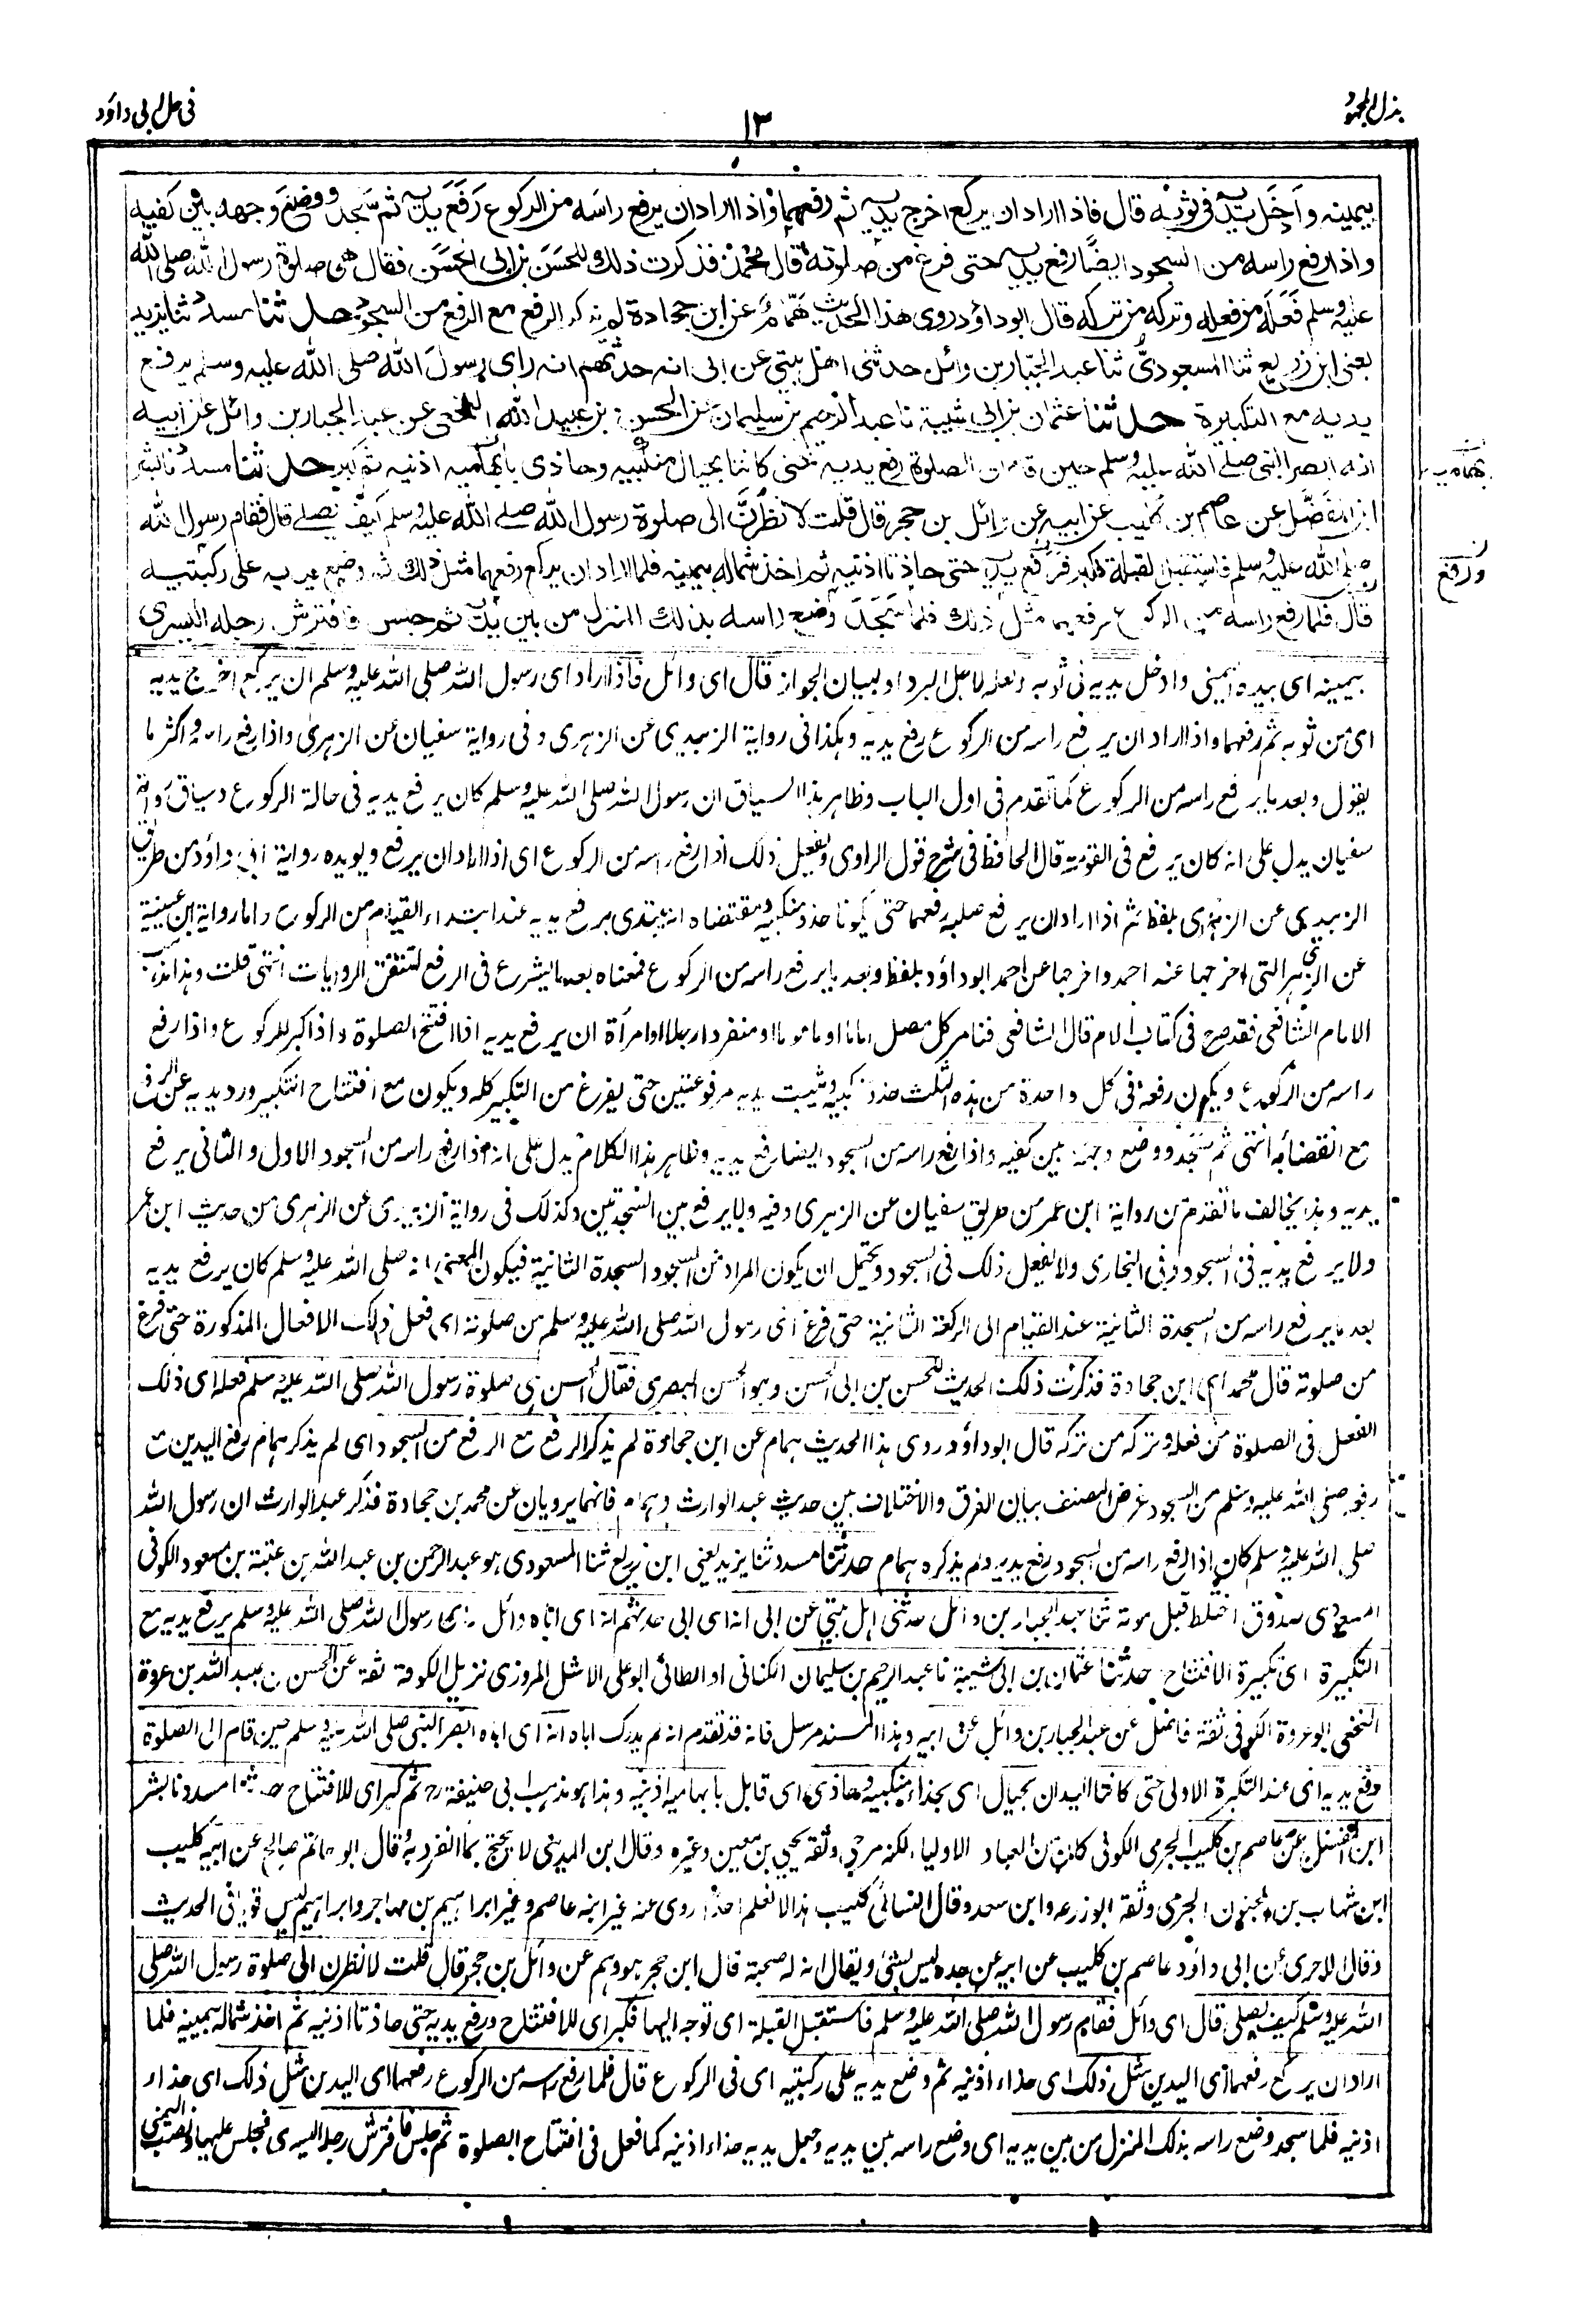 بذل المجهود
١٣
فی حل ابی داؤد
بیمینه وادخل یدیه فی ثوبه قال فاذا اراد ان یرکع اخرج یدیه ثم رفعهما واذا اراد ان یرفع راسه من الرکوع رفع یدیه ثم سجد ووضع وجهه بین کفیه
واذا رفع راسه من السجود ایضا رفع یدیه حتی فرغ من صلوته قال محمد فذکرت ذلك للحسن بن ابی الحسن فقال هی صلوة رسول الله صلی الله
علیه وسلم فعله من فعله وترکه من ترکه قال ابو داؤد روی هذا الحدیث همام عن ابن جحادة لم یذکر الرفع مع الرفع من السجود حدثنا مسدد ثنا یزید
یعنی ابن زریع ثنا المسعودی ثنا عبد الجبار بن وائل حدثنی اهل بیتی عن ابی انه حدثهم انه رای رسول الله صلی الله علیه وسلم یرفع
یدیه مع التکبیرة حدثنا عثمان بن ابی شیبة نا عبد الرحیم بن سلیمان عن الحسن بن عبید الله النخعی عن عبد الجبار بن وائل عن ابیه
انه ابصر النبی صلی الله علیه وسلم حین قام الی الصلوة رفع یدیه حتی کانتا بحیال منکبیه وحاذی بابهامیه اذنیه ثم کبر حدثنا مسدد نا بشر
ابن المفضل عن عاصم بن کلیب عن ابیه عن وائل بن حجر قال قلت لانظرن الی صلوة رسول الله صلی الله علیه وسلم کیف یصلی قال فقام رسول الله
صلی الله علیه وسلم فاستقبل القبلة فکبر فرفع یدیه حتی حاذتا اذنیه ثم اخذ شماله بیمینه فلما اراد ان یرکع رفعهما مثل ذلك ثم وضع یدیه علی رکبتیه
ورفع
قال فلما رفع راسه من الرکوع رفعهما مثل ذلك فلما سجد وضع راسه بذلك المنزل من بین یدیه ثم جلس فافترش رجله الیسری
بیمینه ای بیده الیمنی وادخل یدیه فی ثوبه ولعله لاجل البرد او لبیان الجواز قال ای وائل فاذا اراد ای رسول الله صلی الله علیه وسلم ان یرکع اخرج یدیه
ای من ثوبه ثم رفعهما واذا اراد ان یرفع راسه من الرکوع رفع یدیه وهکذا فی روایة الزبیدی عن الزهری وفی روایة سفیان عن الزهری واذا رفع راسه واکثر ما
یقول وبعد ما یرفع راسه من الرکوع کما تقدم فی اول الباب وظاهر هذا السیاق ان رسول الله صلی الله علیه وسلم کان یرفع یدیه فی حالة الرکوع وسیاق روایة
سفیان یدل علی انه کان یرفع فی القومة قال الحافظ فی شرح قول الراوی ویفعل ذلک اذا رفع راسه من الرکوع ای اذا اراد ان یرفع ویؤیده روایة ابی داؤد من طریق
الزبیدی عن الزهری بلفظ ثم اذا اراد ان یرفع صلبه رفعهما حتی یکونا حذو منکبیه ومقتضاه انه یبتدی برفع یدیه عند ابتداء القیام من الرکوع واما روایة ابن عیینة
عن الزهری التی اخرجها عنه احمد واخرجها عن احمد ابو داؤد بلفظ وبعد ما یرفع راسه من الرکوع فمعناه بعد ما یشرع فی الرفع لتتفق الروایات انتهی قلت وهذا مذهب
الامام الشافعی فقد صرح فی کتاب الام قال الشافعی فنامر کل مصل اماما او ماموما او منفردا رجلا او امرأة ان یرفع یدیه اذا افتتح الصلوة واذا کبر للرکوع واذا رفع
راسه من الرکوع ویکون رفعه فی کل واحدة من هذه الثلث حذو منکبیه ویثبت یدیه مرفوعتین حتی یفرغ من التکبیر کله ویکون مع افتتاح التکبیر ورد یدیه عن الرفع
مع انقضائه انتهی ثم سجد ووضع وجهه بین کفیه واذا رفع راسه من السجود ایضا رفع یدیه وظاهر هذا الکلام یدل علی انه اذا رفع راسه من السجود الاول والثانی یرفع
یدیه وهذا یخالف ما تقدم من روایة ابن عمر من طریق سفیان عن الزهری وفیه ولا یرفع بین السجدتین وکذلک فی روایة الزبیدی عن الزهری من حدیث ابن عمر
ولا یرفع یدیه فی السجود وفی البخاری ولا یفعل ذلک فی السجود ویحتمل ان یکون المراد من السجود السجدة الثانیة فیکون المعنی انه صلی الله علیه وسلم کان یرفع یدیه
بعد ما یرفع راسه من السجدة الثانیة عند القیام الی الرکعة الثانیة حتی فرغ ای رسول الله صلی الله علیه وسلم من صلوته ای فعل ذلک الافعال المذکورة حتی فرغ
من صلوته قال محمد ای ابن جحادة فذکرت ذلک الحدیث للحسن بن ابی الحسن وهو الحسن البصری فقال الحسن هی صلوة رسول الله صلی الله علیه وسلم فعله ای ذلک
الفعل فی الصلوة من فعله وترکه من ترکه قال ابو داؤد روی هذا الحدیث همام عن ابن جحادة لم یذکر الرفع مع الرفع من السجود ای لم یذکر همام رفع الیدین مع
رفعه صلی الله علیه وسلم من السجود غرض المصنف بیان الفرق والاختلاف بین حدیث عبد الوارث وهمام فانهما یرویان عن محمد بن جحادة فذکر عبد الوارث ان رسول الله
صلی الله علیه وسلم کان اذا رفع راسه من السجود رفع یدیه ولم یذکره همام حدثنا مسدد ثنا یزید یعنی ابن زریع ثنا المسعودی هو عبد الرحمن بن عبد الله بن عتبة بن مسعود الکوفی
المسعودی صدوق اختلط قبل موته ثنا عبد الجبار بن وائل حدثنی اهل بیتی عن ابی انه ای ابی حدثهم انه ای اباه وائل رای رسول الله صلی الله علیه وسلم یرفع یدیه مع
التکبیرة ای تکبیرة الافتتاح حدثنا عثمان بن ابی شیبة نا عبد الرحیم بن سلیمان الکنانی او الطائی ابو علی الاشل المروزی نزیل الکوفة ثقة عن الحسن بن عبید الله بن عروة
النخعی ابو عروة الکوفی ثقة فاضل عن عبد الجبار بن وائل عن ابیه وهذا السند مرسل فانه قد تقدم انه لم یدرک اباه انه ای اباه ابصر النبی صلی الله علیه وسلم حین قام الی الصلوة
رفع یدیه ای عند التکبیرة الاولی حتی کانتا الیدان بحیال ای بحذاء منکبیه وحاذی ای قابل بابهامیه اذنیه وهذا هو مذهب ابی حنیفة رح ثم کبر ای للافتتاح حدثنا مسدد نا بشر
ابن المفضل عن عاصم بن کلیب الجرمی الکوفی کان من العباد الاولیاء لکنه مرجی وثقه یحیی بن معین وغیره وقال ابن المدینی لا یحتج بما انفرد به وقال ابو حاتم صالح عن ابیه کلیب
ابن شهاب بن المجنون الجرمی وثقه ابو زرعه وابن سعد وقال النسائی کلیب هذا لا نعلم احدا روی عنه غیر ابنه عاصم وغیر ابراهیم بن مهاجر وابراهیم لیس بقوی فی الحدیث
وقال الآجری عن ابی داؤد عاصم بن کلیب عن ابیه عن جده لیس بشئ ویقال انه له صحبة قال ابن حجر هو وهم عن وائل بن حجر قال قلت لانظرن الی صلوة رسول الله صلی
الله علیه وسلم کیف یصلی قال ای وائل فقام رسول الله صلی الله علیه وسلم فاستقبل القبلة ای توجه الیها فکبر ای للافتتاح ورفع یدیه حتی حاذتا اذنیه ثم اخذ شماله بیمینه فلما
اراد ان یرکع رفعهما ای الیدین مثل ذلک ای حذاء اذنیه ثم وضع یدیه علی رکبتیه ای فی الرکوع قال فلما رفع راسه من الرکوع رفعهما ای الیدین مثل ذلک ای حذاء
اذنیه فلما سجد وضع راسه بذلک المنزل من بین یدیه ای وضع راسه بین یدیه وجعل یدیه حذاء اذنیه کما فعل فی افتتاح الصلوة ثم جلس فافترش رجله الیسری فجلس علیها ونصب الیمنی